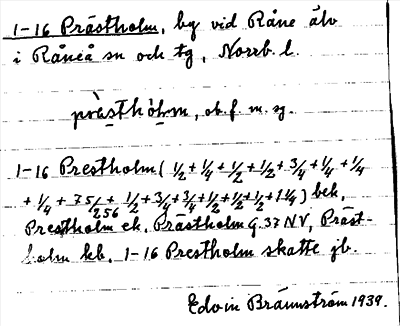 1-16 Prästholm, by vid Råne älv
i Råneå sn och tg, Norrb. l.
prästhòlm, ob. f. m. sg.
1-16 Prestholm (1/2 + 1/4 + 1/2 + 1/2 + 3/4 + 1/4 + 1/4
+ 1/4 + 75/256 + 1/2 + 3/4 + 3/4 + 1/2 + 1/2 + 1/2 + 1 1/4) bek,
Prestholm ek. Prästholm G. 37 NV, Präst-
holm kb. 1-16 Prestholm skatte jb.
Edvin Brännström 1939.